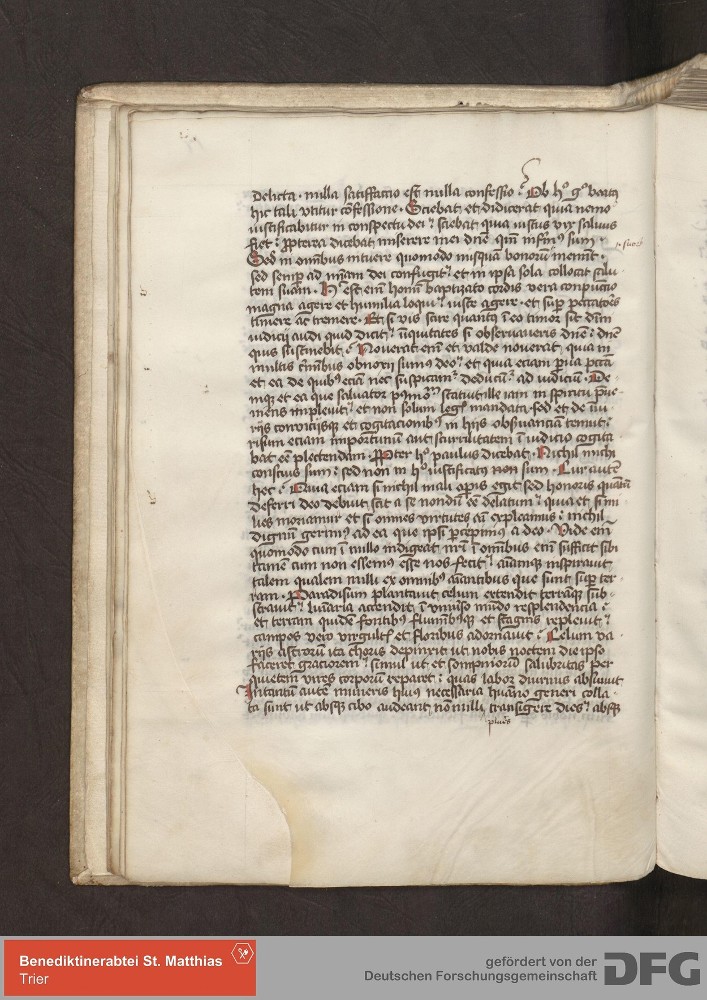 delicta · nulla satisfactio est nulla confessio : Ob h° g° beatus
hic tali vtitur cōfessione · Sciebat et didicerat quia nemo
iustificabitur in conspectu dei : sciebat quia iustus vix saluus
fiet : ꝓpterea dicebat miserere mei dn̄e qm̄ infirm9 sum ·
Sed in omnibus intuere quomodo nusquā bonorū meminit ·
sed semꝑ ad mīam dei confugit : et in ipsa sola collocat salu
tem suam · H est eni homī baptizato cordis vera conpunctio
magna agere et humilia loqui : iuste agere · et suꝑ peccatores
timere ac tremere · Et si vis scire quantus ī eo timor sit diuini
iudicij audi quid dicit : īiquitates si obseruaueris dn̄e : dn̄e
quis sustinebit : Nouerat em̄ et valde nouerat quia in
multis criminibus obnoxij sumus deo : et quia eciam ꝑua pctā
et ea de quibus eciā nec suspicamur deducunt ad iudiciū · De
nique et ea que saluator postmodū statuit ille iam in spiritu
mens impleuit : et non solum legis mandata sed et de iniu
rijs conuicijsque et cogitacionibus in hijs obseruanciā tenuit :
risum eciam importunū aut scurrilitatem ī iudicio cogita
bat ēe plectendam · ꝓpter h° paulus dicebat · Nichil michi
conscius sum : sed non in h° iustificatus non sum · Cur autē
hec : Quia eciam si nichil mali operis egit sed honoris quantū
deferri deo debuit scit a se nondū ēe delatum : quia et si mi
lies moriamur et si omnes virtutes aī expleamus : nichil
dignū gerimus ad ea que ipsi percepimus a deo · Vide em̄
quomodo cum ī nullo indigeat nr̄i ī omnibus em̄ sufficit sibi
tamen cum non essemus esse nos fecit : animāque inspirauit
talem qualem nulli ex omnibus animantibus que sunt suꝑ ter
ram · Paradisum plantauit celum extendit terramque sub
strauit : luminaria accendit ī vniuerso mūdo resplendencia :
et terram quidē fontibus fluminibusque et stagnis repleuit :
campos vero virgultis et floribus adornauit : Celum va
rijs astrorū ita choris depinxit ut nobis noctem die ipso
faceret graciorem : simul ut et sompniorū salubritas per
quietem vires corporū reparet : quas labor diurnus absumit
Intantū autē muneris huius necessaria humāo generi colla
ta sunt ut absque cibo audeant nōnulli transigere dies : absque
plures